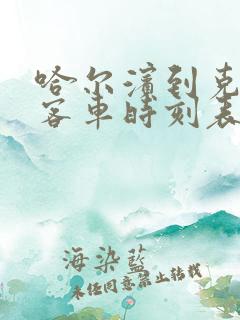 哈尔滨到克
客车时刻表
海染蓝
未经同意禁止转载